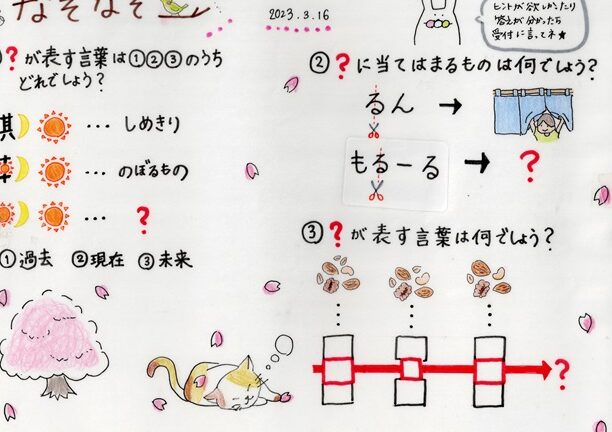 なぞなぞ
2023.3.16
ヒントが欲しかったり
答えが分かったら
受付に言ってネ★
?が表す言葉は①②③のうち
どれでしょう?
… しめきり
… のぼるもの
… ?
①過去 ②現在 ③未来
②?に当てはまるものは何でしょう?
るん →
もるーる → ?
③?が表す言葉は何でしょう?
?